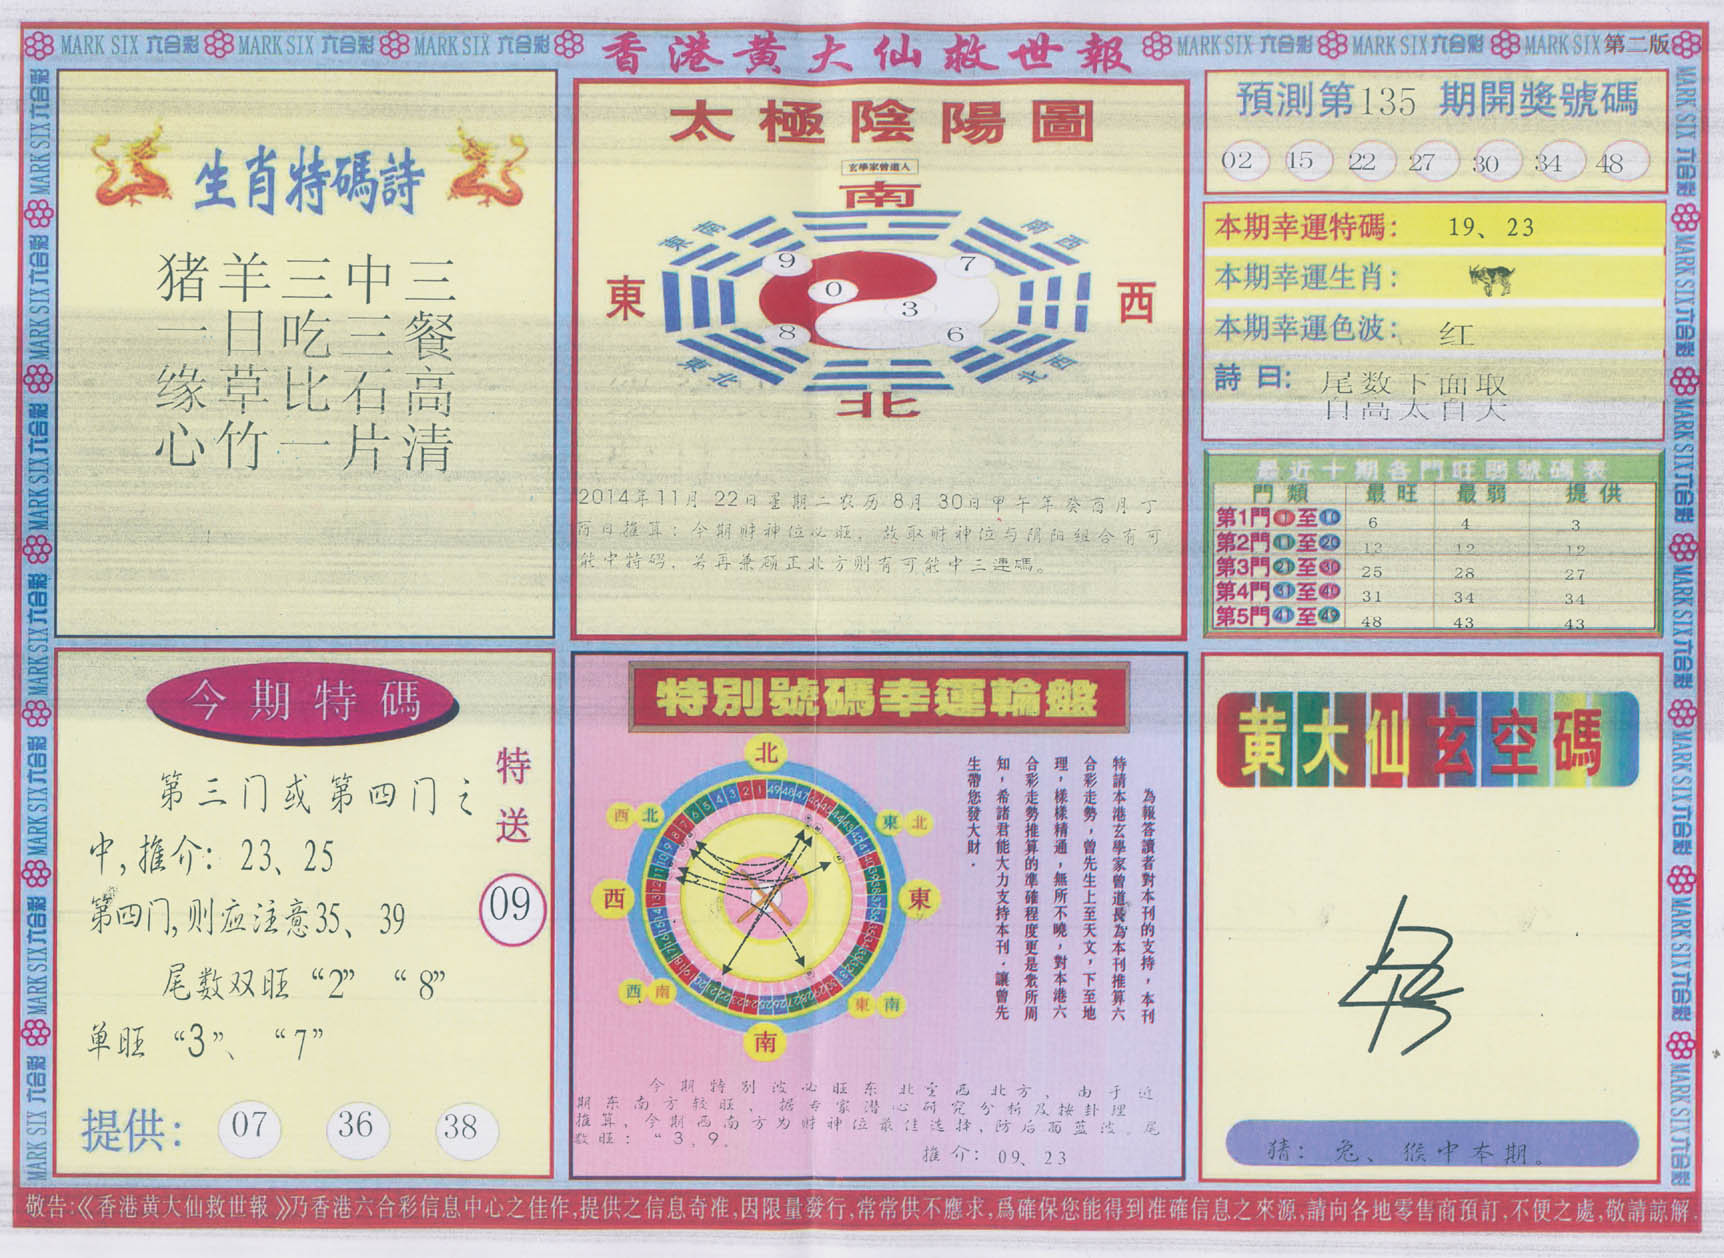 MARK SIX 六合彩 MARK SIX 六合彩 MARK SIX 六合彩
香港黄大仙救世報
MARK SIX 六合彩 MARK SIX 六合彩 MARK SIX 第二版
生肖特碼詩
猪羊三中三
一日吃三餐
缘草比石高
心竹一片清
太極陰陽圖
玄學家曾道人
南
東南
南西
9
7
0
3
8
6
東
西
東北
北西
北
2014年11月 22日星期二农历 8月 30日甲午年癸酉月丁
酉日推算：今期财神位必旺，故取财神位与阴阳组合有可
能中特码，若再兼顾正北方则有可能中三連碼。
預測第135 期開獎號碼
02 15 22 27 30 34 48
本期幸運特碼： 19、23
本期幸運生肖：
本期幸運色波： 红
詩曰： 尾数下面取
自高太自大
最近十期各門旺弱號碼表
門類 最旺 最弱 提供
第1門 1 至 10 6 4 3
第2門 11 至 20 12 12 12
第3門 21 至 30 25 28 27
第4門 31 至 40 31 34 34
第5門 41 至 49 48 43 43
今期特碼
第三门或第四门之
中,推介：23、25
第四门,则应注意35、39
尾数双旺“2” “8”
单旺 “3”、 “7”
特送
09
提供： 07 36 38
特別號碼幸運輪盤
北
西北
東北
西
東
西南
東南
南
為報答讀者對本刊的支持，本刊
特請本港玄學家曾道長為本刊推算六
合彩走勢，曾先生上至天文，下至地
理，樣樣精通，無所不曉，對本港六
合彩走勢推算的準確程度更是衆所周
知，希諸君能大力支持本刊．讓曾先
生帶您發大財．
今期特别波必旺东北至西北方，由于近
期东南方较旺，据专家潜心研究分析及按卦理
推算，今期西南方为财神位最佳选择，防后面蓝波。尾
数旺：“3,9．
推介：09、23
黄大仙玄空碼
猜：兔、猴中本期。
敬告:《香港黄大仙救世報》乃香港六合彩信息中心之佳作,提供之信息奇准,因限量發行,常常供不應求,爲確保您能得到准確信息之來源,請向各地零售商預訂,不便之處,敬請諒解.